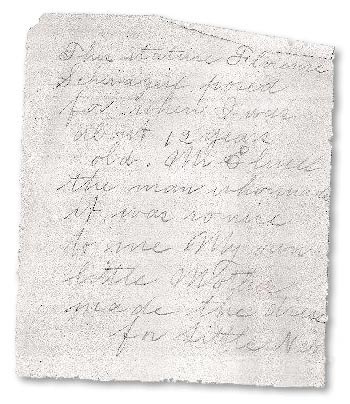 This stature Florance
Schwazriel posed
for when I was
about 12 years
old. Mr Elwell
the man who made
it was so nice
to me My own
little Mother
made the dress
for Little Nell